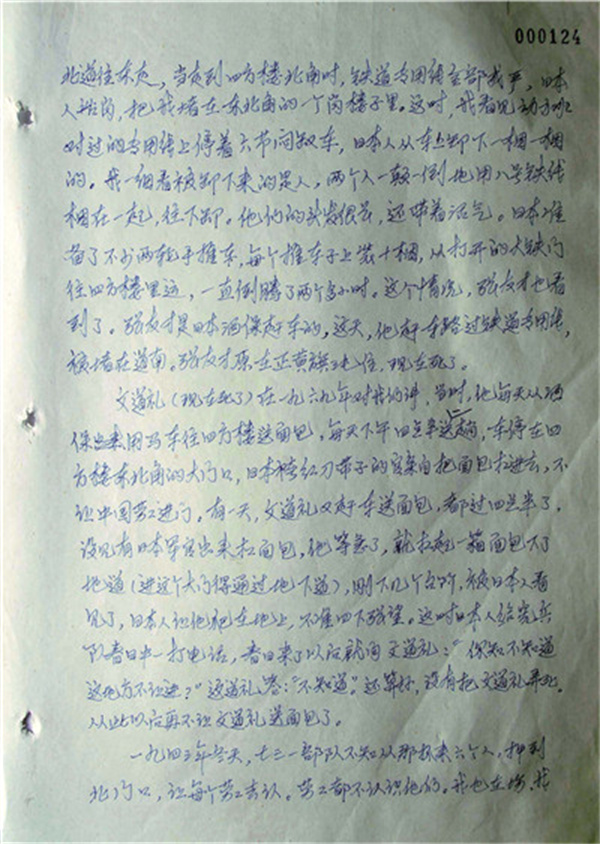 000124
北道往东走,当走到四方楼北角时,铁道专用线全部戒严,日本
人站岗,把我堵在东北角的一个岗楼子里。这时,我看见动力班
对过的专用线上停着六节闷罐车,日本人从车上卸下一梱一梱
的。我一细看被卸下来的是人,两个人一颠一倒地用八号铁线
梱在一起,往下卸。他们的头发很长,还喘着活气。日本准
备了不少两轮手推车,每个推车子上装十梱,从打开的大铁门
往四方楼里运,一直倒腾了两个多小时。这个情况,张友才也看
到了。张友才是日本酒保赶车的,这天,他赶车路过铁道专用线,
被堵在道南。张友才原在正黄旗三屯住,现在死了。
文道礼(现在死了)在一九六九年对我们讲,当时,他每天从酒
保出来用马车往四方楼送面包,每天下午四点半送,车停在四
方楼东北角的大门口,日本挎红刀带子的官亲自把面包拉进去,不
让中国劳工进门。有一天,文道礼又赶车送面包,都过四点半了,
没见有日本军官出来拉面包,他等急了,就拉起一箱面包下了
地道(进这个大门得通过地下道),刚下几个台阶,被日本人看
见了,日本人让他趴在地上,不准四下张望。这时日本人给宪兵
队春日中一打电话,春日来了以后就问文道礼:“你知不知道
这地方不让进?”文道礼答:“不知道。”还算好,没有把文道礼弄死。
从此以后再不让文道礼送面包了。
一九四三年冬天,七三一部队不知从那抓来六个人,押到
北门口,让每个劳工去认。劳工都不认识他们。我也在场,我